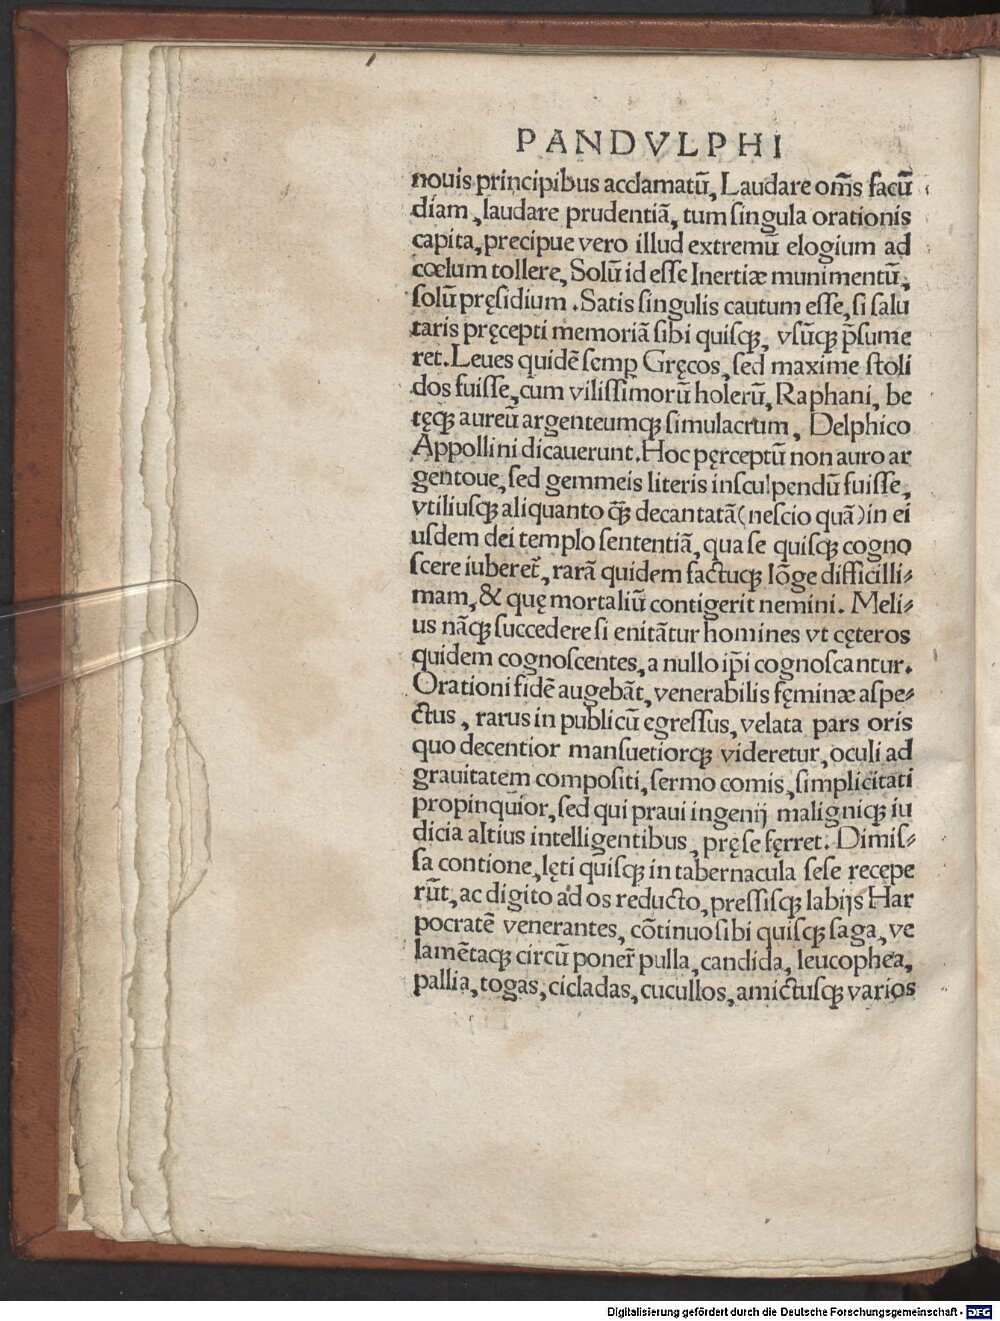 PANDVLPHI
nouis principibus acclamatū, Laudare om̄s facū
diam, laudare prudentiā, tum singula orationis
capita, precipue vero illud extremū elogium ad
cœlum tollere, Solū id esse Inertiæ munimentū,
solū pręsidium. Satis singulis cautum esse, si salu
taris pręcepti memoriā sibi quisqꝫ, vsūqꝫ p̄sume
ret. Leues quidē semꝑ Gręcos, sed maxime stoli
dos fuisse, cum vilissimorū holerū, Raphani, be
tęqꝫ aureū argenteumqꝫ simulacrum, Delphico
Appollini dicauerunt. Hoc pęrceptū non auro ar
gentoue, sed gemmeis literis insculpendū fuisse,
vtiliusqꝫ aliquanto q̄ꝫ decantatā (nescio quā) in ei
usdem dei templo sententiā, qua se quisqꝫ cogno
scere iuberet̄, rarā quidem factuqꝫ lōge difficilli⸗
mam, & quę mortaliū contigerit nemini. Meli⸗
us nāqꝫ succedere si enitātur homines vt cęteros
quidem cognoscentes, a nullo ip̄i cognoscantur.
Orationi fidē augebāt, venerabilis fęminæ aspe⸗
ctus, rarus in publicū egressus, velata pars oris
quo decentior mansuetiorqꝫ videretur, oculi ad
grauitatem compositi, sermo comis, simplicitati
propinquior, sed qui praui ingenij maligniqꝫ iu
dicia altius intelligentibus, pręse fęrret. Dimis⸗
sa contione, lęti quisqꝫ in tabernacula sese recępe
rūt, ac digito ad os reducto, pressisqꝫ labijs Har
pocratē venerantes, cōtinuo sibi quisqꝫ saga, ve
lamētaqꝫ circū poner̄ pulla, candida, leucophea,
pallia, togas, cicladas, cucullos, amictusqꝫ varios
Digitalisierung gefördert durch die Deutsche Forschungsgemeinschaft - DFG